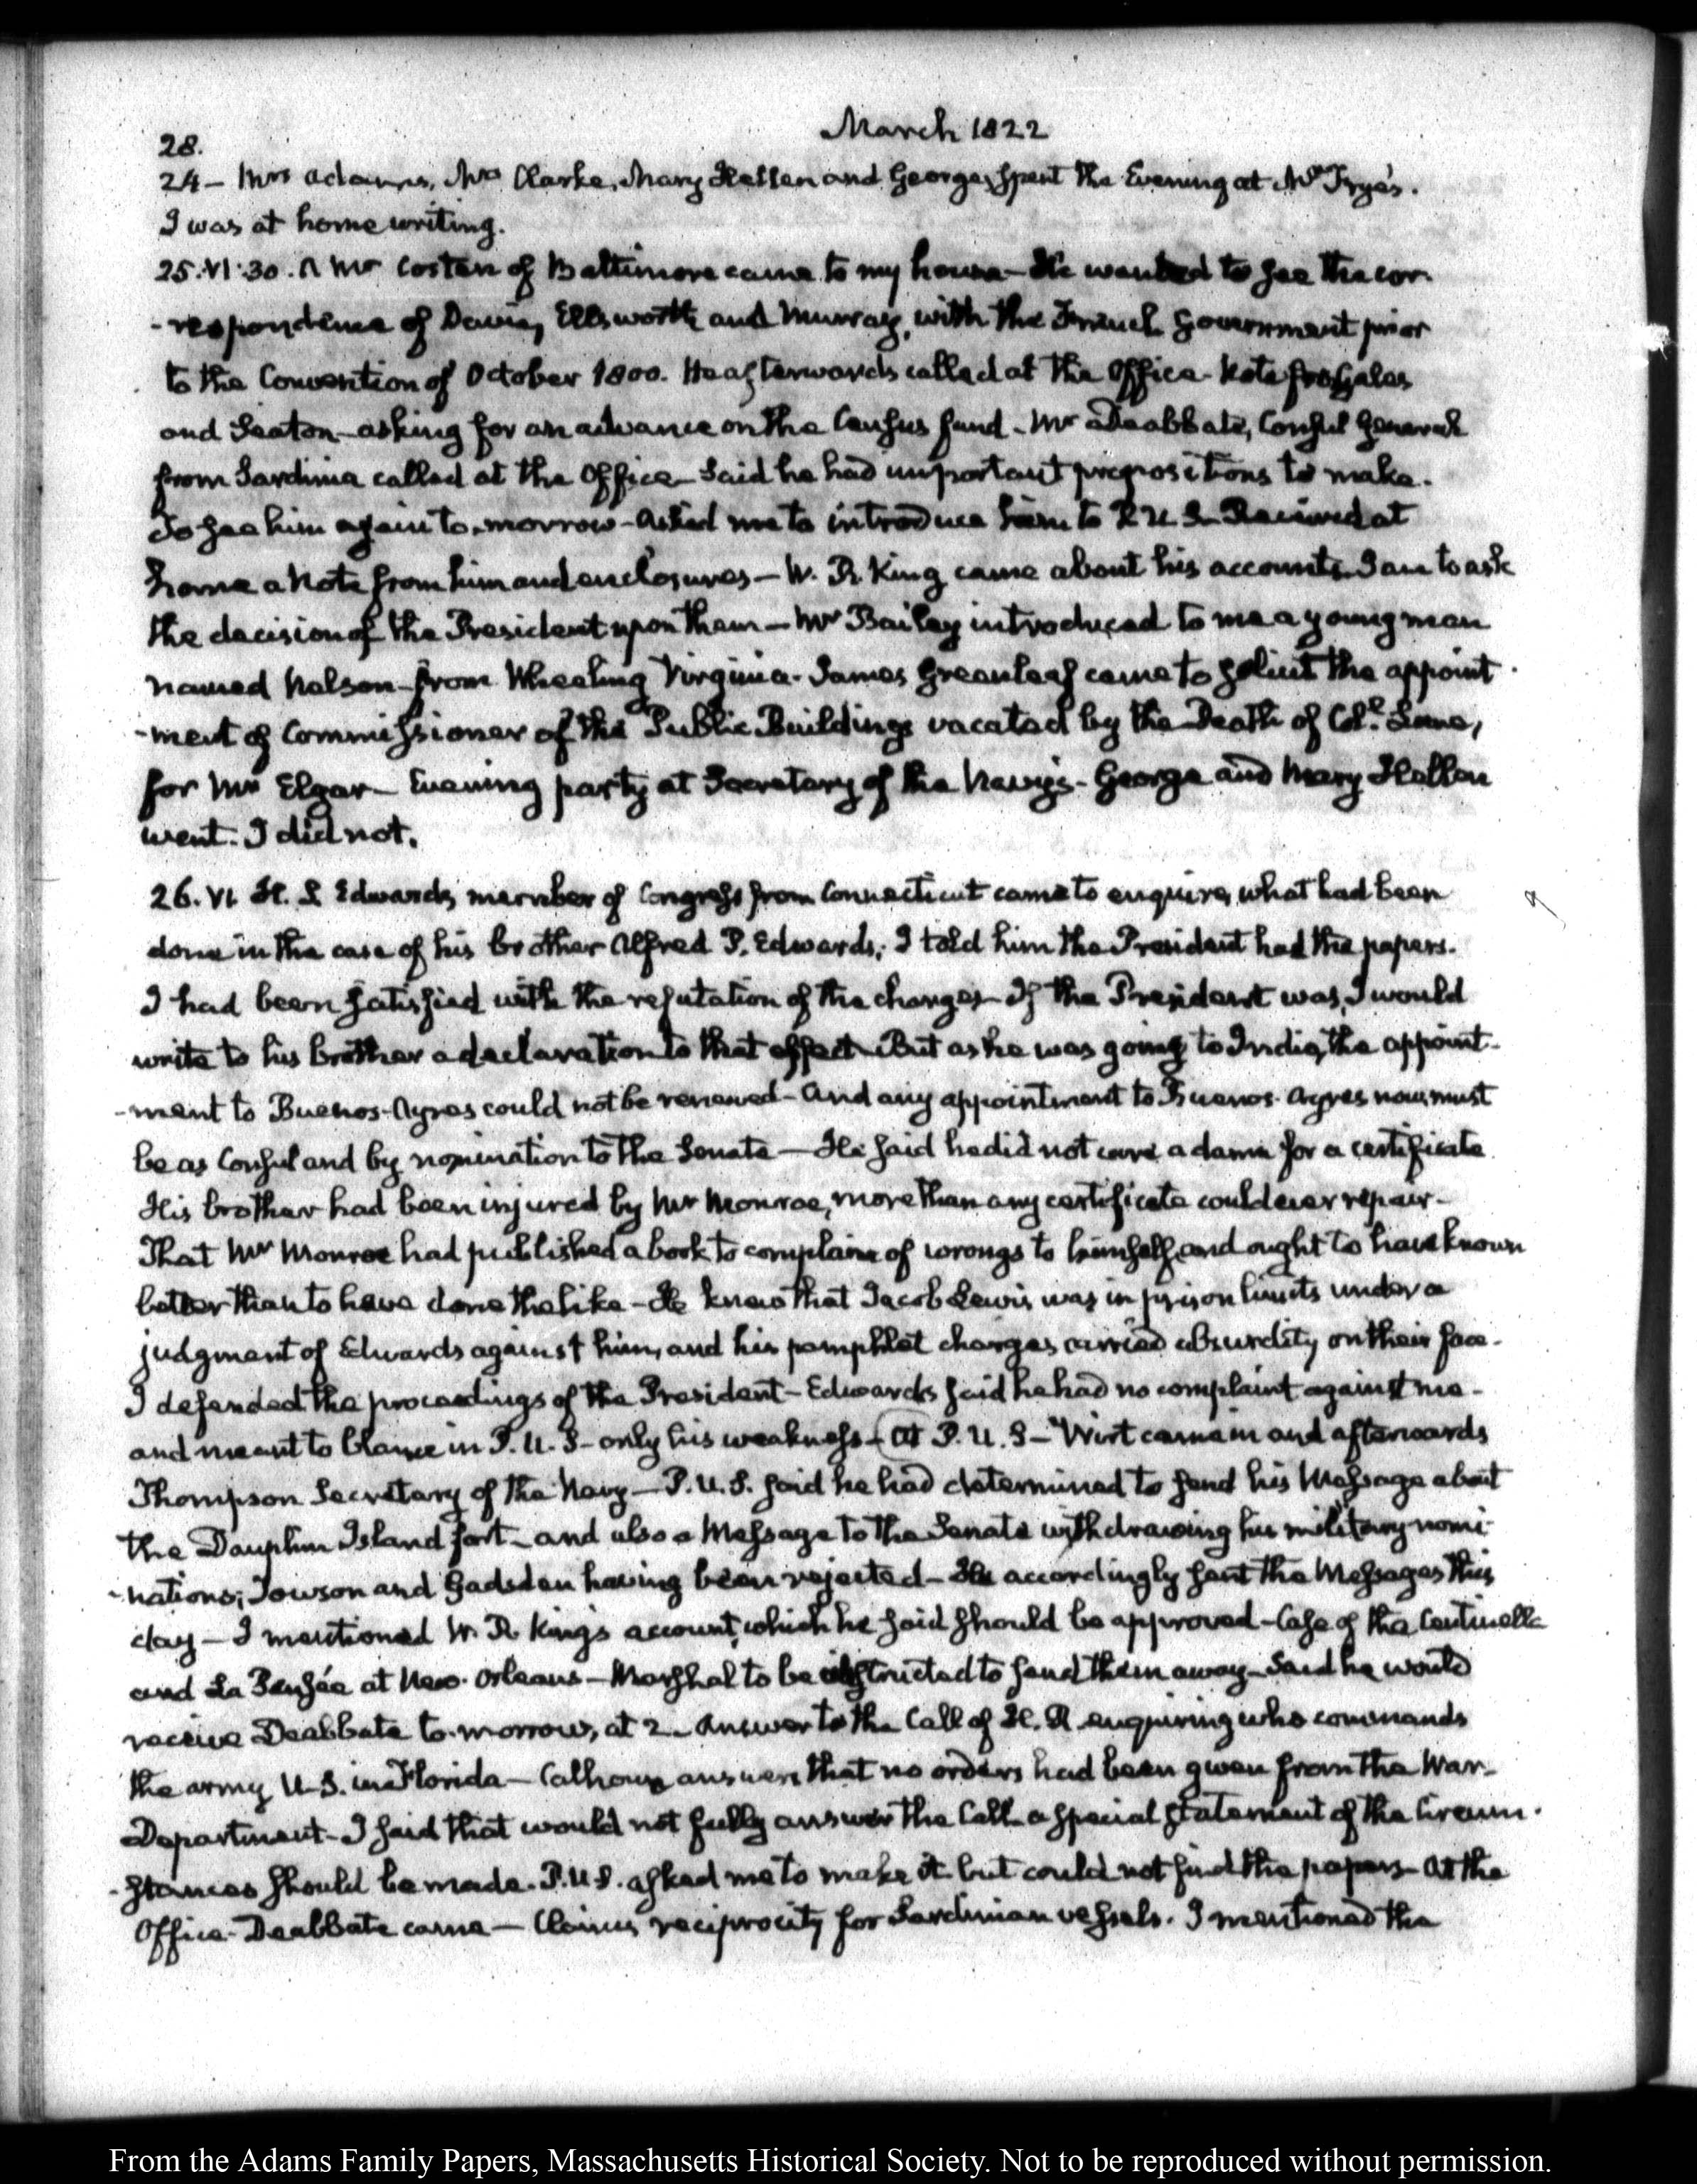 28.
March 1822
24 – Mrs Adams, Mrs Clarke, Mary Hellen and George, spent the Evening at Mrs Frye's.
I was at home writing.
25. VI:30. A Mr Costen of Baltimore came to my house – He wanted to see the cor-
-respondence of Davie, Ellsworth and Murray, with the French Government prior
to the Convention of October 1800. He afterwards called at the Office – Note from Gales
and Seaton – asking for an advance on the Census fund – Mr Deabbate, Consul General
from Sardinia called at the Office – Said he had important propositions to make.
To see him again to-morrow – Asked me to introduce him to P. U. S. Received at
home a Note from him and enclosures – W. R. King came about his accounts. I am to ask
the decision of the President upon them – Mr Bailey introduced to me a young man
named Nelson – from Wheeling Virginia. James Greenleaf came to solicit the appoint-
-ment of Commissioner of the Public Buildings vacated by the Death of Coll. Lane,
for Mr Elgar – Evening party at Secretary of the Navy's – George and Mary Hellen
went. I did not.
26. VI. H. S Edwards, member of Congress from Connecticut came to enquire, what had been
done in the case of his brother Alfred P. Edwards; I told him the President had the papers.
I had been satisfied with the refutation of the charges – If the President was, I would
write to his brother a declaration to that effect – But as he was going to India, the appoint-
-ment to Buenos-Ayres could not be renewed – And any appointment to Buenos-Ayres now, must
be as Consul and by nomination to the Senate – He said he did not care a damn for a certificate
His brother had been injured by Mr Monroe, more than any certificate could ever repair –
That Mr Monroe had published a book to complain of wrongs to himself, and ought to have known
better than to have done the like – He knew that Jacob Lewis was in prison limits under a
judgment of Edwards against him, and his pamphlet charges carried absurdity on their face –
I defended the proceedings of the President – Edwards said he had no complaint against me –
and meant to blame in P. U. S – only his weakness – At P. U. S – Wirt came in and afterwards
Thompson Secretary of the Navy – P. U. S. said he had determined to send his Message about
the Dauphin Island fort – and also a Message to the Senate withdrawing his military nomi-
-nations; Towson and Gadsden having been rejected – He accordingly sent the Messages this
day – I mentioned W. R. King's account, which he said should be approved – Case of the Centinella
and La Pensée at New-Orleans – Marshal to be instructed to send them away – Said he would
receive Deabbate to-morrow, at 2 – Answer to the Call of H. R. enquiring who commands
the army U. S. in Florida – Calhoun answers that no orders had been given from the War-
Department – I said that would not fully answer the Call – a special statement of the Circum-
-stances should be made – P. U S. asked me to make it – but could not find the papers – At the
Office – Deabbate came – Claims reciprocity for Sardinian vessels. I mentioned the
From the Adams Family Papers, Massachusetts Historical Society. Not to be reproduced without permission.